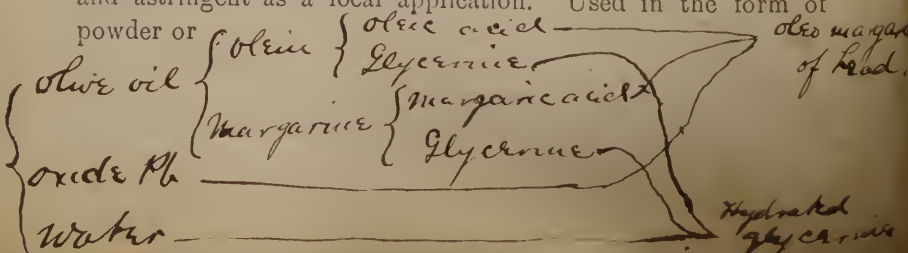 and astringent as a local application. Used in the form of
powder or
olive oil { olein { oleic acid
Glycerine
margarine { margaric acid
Glycerine
oxide Pb
Water
oleo margar
of lead.
Hydrated
glycerine